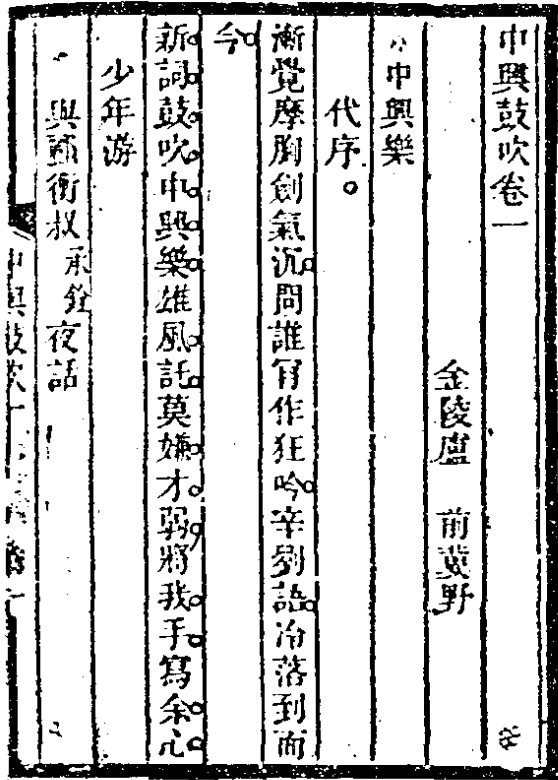 中興鼓吹卷一
金陵盧　前冀野
中興樂
代序。
漸覺摩胸劍氣沉問誰肎作狂吟辛劉語冷落到而
今
新詞鼓吹中興樂雄風託莫嫌才弱將我手寫余心
少年游
與衡叔承銓夜話
中興鼓吹